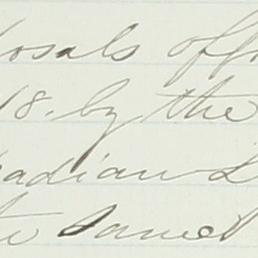 osals off
18. by the
adian L
te same